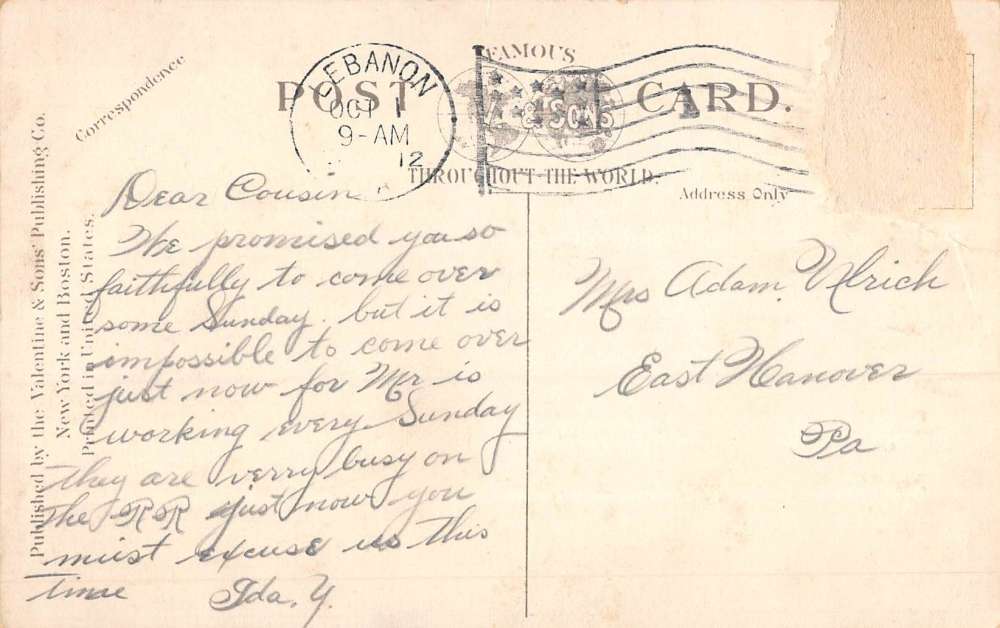 Correspondence
POST CARD.
FAMOUS
& SONS
THROUGHOUT THE WORLD.
LEBANON
OCT 1
9-AM
12
Address Only
Published by the Valentine & Sons' Publishing Co.
New York and Boston.
Printed in United States.
Dear Cousin
We promised you so
faithfully to come over
some Sunday. but it is
impossible to come over
just now for Mr is
working every Sunday
they are verry busy on
the RR just now you
must excuse us this
time Ida. Y.
Mrs Adam Ulrich
East Hanover
Pa